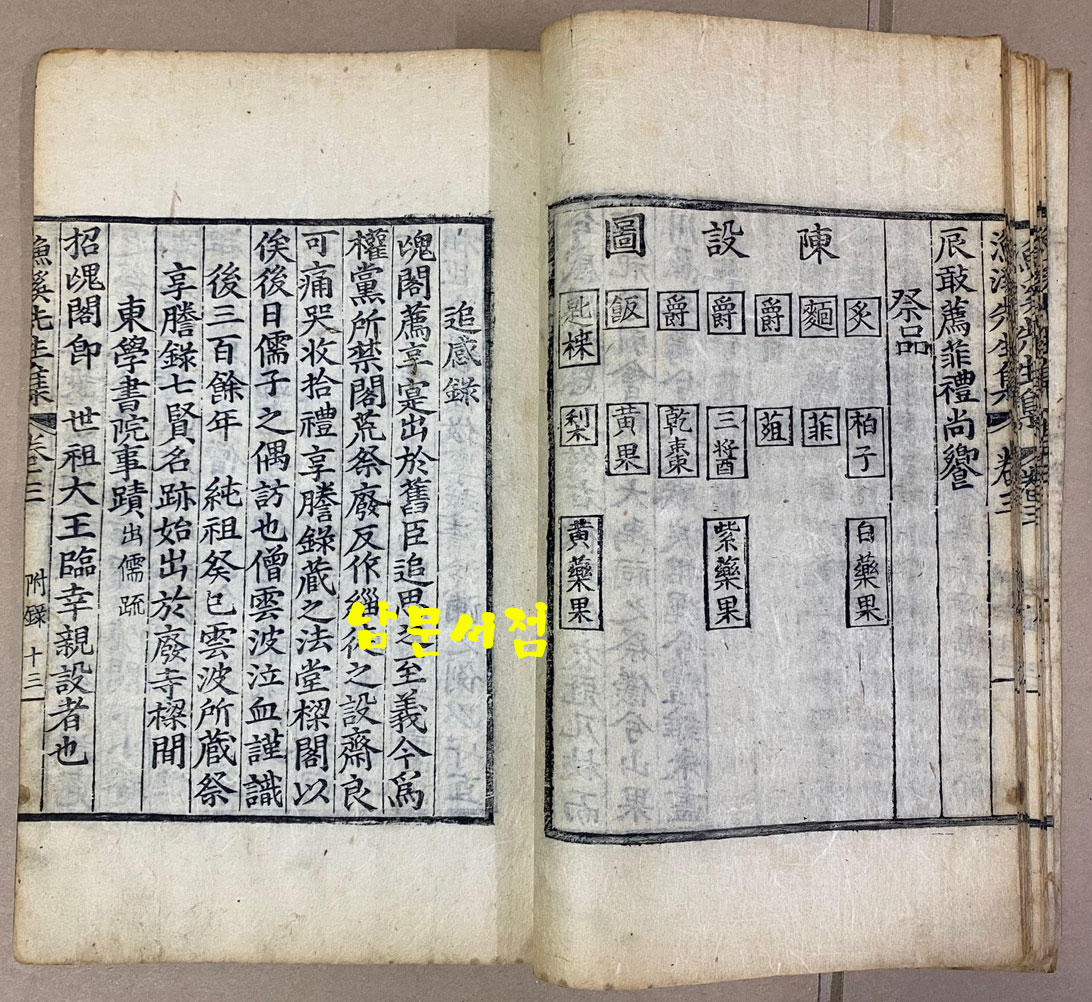 漁溪先生集 卷三
辰敢薦菲禮尚饗
祭品
陳設圖
炙 麵 爵 爵 爵 飯 匙楪
柏子 菲 葅 三醬 乾棗 黃果 梨
白藥果 紫藥果 黃藥果
追感錄
魂閣薦享寔出於舊臣追思之至義今爲
權黨所禁閣荒祭廢反作緇徒之設齋良
可痛哭收拾禮享謄錄蔵之法堂樑閣以
俟後日儒子之偶訪也僧雲波泣血謹識
後三百餘年 純祖癸巳雲波所蔵祭
享謄錄七賢名跡始出於廢寺樑間
東學書院事蹟 出儒疏
招魂閣卽 世祖大王臨幸親設者也
漁溪先生集 卷之三 附録 十三
남문서점